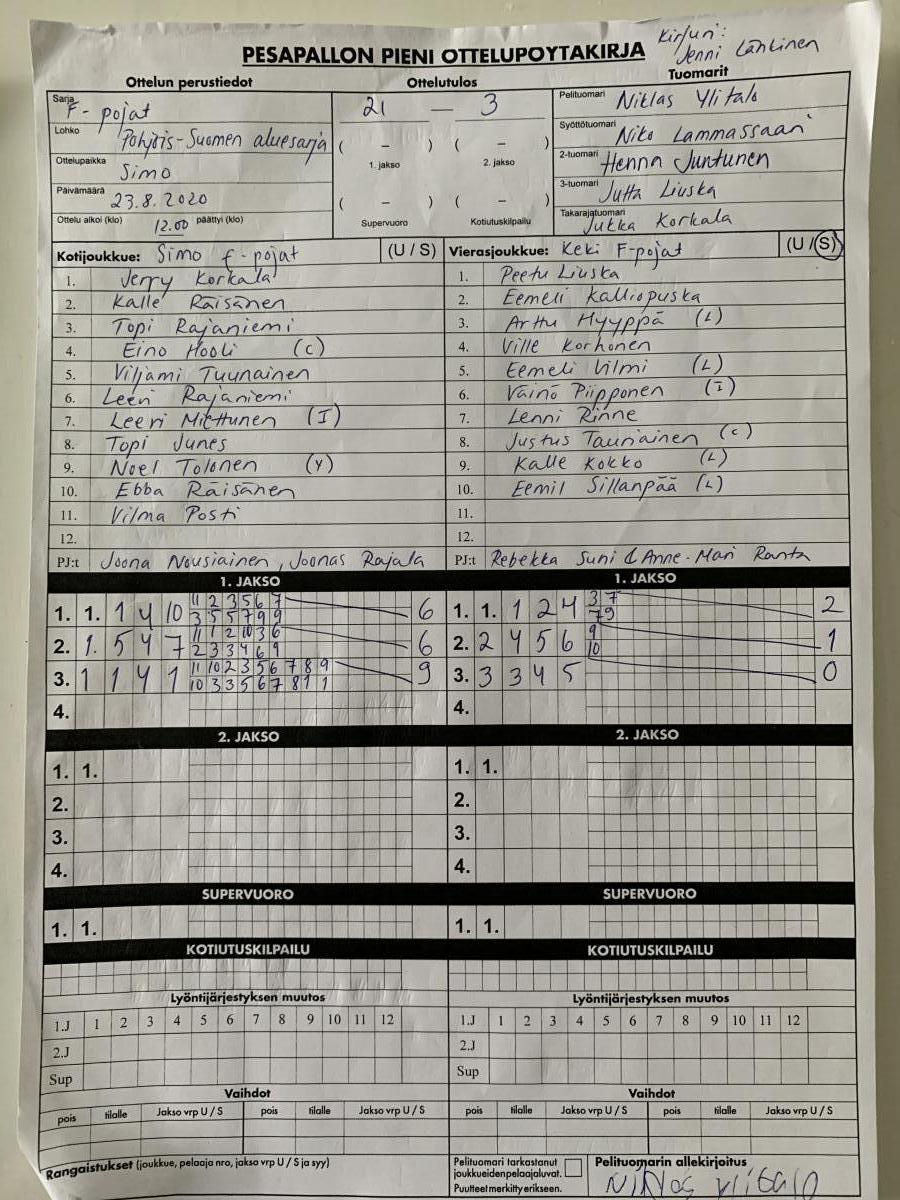 Kirjuri:
Jenni Lähkinen
PESAPALLON PIENI OTTELUPOYTAKIRJA
Ottelun perustiedot Ottelutulos Tuomarit
Sarja F-pojat 21 — 3 Pelituomari Niklas Ylitalo
Lohko Pohjois-Suomen aluesarja ( – ) ( – ) Syöttötuomari Niko Lammassaari
Ottelupaikka Simo 1. jakso 2. jakso 2-tuomari Henna Juntunen
Päivämäärä 23.8.2020 ( – ) ( – ) 3-tuomari Jutta Liuska
Ottelu alkoi (klo) 12.00 päättyi (klo) Supervuoro Kotiutuskilpailu Takarajatuomari Jukka Korkala
Kotijoukkue: Simo f-pojat (U / S) Vierasjoukkue: Keki F-pojat (U / S)
1. Jerry Korkala 1. Peetu Liuska
2. Kalle Räisänen 2. Eemeli Kalliopuska
3. Topi Rajaniemi 3. Arttu Hyyppä (L)
4. Eino Hooli (C) 4. Ville Korhonen
5. Viljami Tuunainen 5. Eemeli Vilmi (L)
6. Leevi Rajaniemi 6. Väinö Piipponen (I)
7. Leevi Miettunen (I) 7. Lenni Rinne
8. Topi Junes 8. Justus Tauriainen (C)
9. Noel Tolonen (Y) 9. Kalle Kokko (L)
10. Ebba Räisänen 10. Eemil Sillanpää (L)
11. Vilma Posti 11.
12. 12.
PJ:t Joona Nousiainen, Joonas Rajala PJ:t Rebekka Suni & Anne-Mari Ranta
1. JAKSO 1. JAKSO
1. 1. 1 4 10 11 2 3 5 6 7 6 1. 1. 1 2 4 3 7 2
3 5 5 7 9 9 7 9
2. 1. 5 4 7 11 1 2 10 3 6 6 2. 2 4 5 6 9 1
2 3 3 4 6 9 10
3. 1 1 4 1 11 10 2 3 5 6 7 8 9 9 3. 3 3 4 5 0
10 3 3 5 6 7 8 1 1
4. 4.
2. JAKSO 2. JAKSO
1. 1. 1. 1.
2. 2.
3. 3.
4. 4.
SUPERVUORO SUPERVUORO
1. 1. 1. 1.
KOTIUTUSKILPAILU KOTIUTUSKILPAILU
Lyöntijärjestyksen muutos Lyöntijärjestyksen muutos
1.J 1 2 3 4 5 6 7 8 9 10 11 12 1.J 1 2 3 4 5 6 7 8 9 10 11 12
2.J 2.J
Sup Sup
Vaihdot Vaihdot
pois tilalle Jakso vrp U / S pois tilalle Jakso vrp U / S pois tilalle Jakso vrp U / S pois tilalle Jakso vrp U / S
Rangaistukset (joukkue, pelaaja nro, jakso vrp U / S ja syy) Pelituomari tarkastanut Pelituomarin allekirjoitus
joukkueidenpelaajaluvat.
Puutteet merkitty erikseen. Niklas Ylitalo